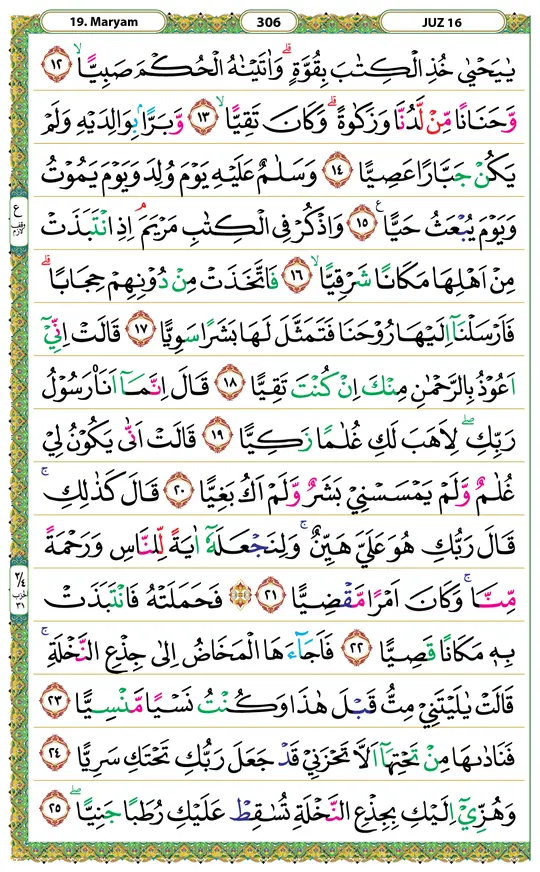 19. Maryam 306 JUZ 16
يٰيَحْيٰى خُذِ الْكِتٰبَ بِقُوَّةٍ ۗ وَاٰتَيْنٰهُ الْحُكْمَ صَبِيًّا ۙ ١٢
وَّحَنَانًا مِّنْ لَّدُنَّا وَزَكٰوةً ۗ وَكَانَ تَقِيًّا ۙ ١٣ وَّبَرًّاۢ بِوَالِدَيْهِ وَلَمْ
يَكُنْ جَبَّارًا عَصِيًّا ١٤ وَسَلٰمٌ عَلَيْهِ يَوْمَ وُلِدَ وَيَوْمَ يَمُوْتُ
وَيَوْمَ يُبْعَثُ حَيًّا ࣖ ١٥ وَاذْكُرْ فِى الْكِتٰبِ مَرْيَمَۘ اِذِ انْتَبَذَتْ
مِنْ اَهْلِهَا مَكَانًا شَرْقِيًّا ۙ ١٦ فَاتَّخَذَتْ مِنْ دُوْنِهِمْ حِجَابًا ۗ
فَاَرْسَلْنَآ اِلَيْهَا رُوْحَنَا فَتَمَثَّلَ لَهَا بَشَرًا سَوِيًّا ١٧ قَالَتْ اِنِّيْٓ
اَعُوْذُ بِالرَّحْمٰنِ مِنْكَ اِنْ كُنْتَ تَقِيًّا ١٨ قَالَ اِنَّمَآ اَنَا۠ رَسُوْلُ
رَبِّكِۖ لِاَهَبَ لَكِ غُلٰمًا زَكِيًّا ١٩ قَالَتْ اَنّٰى يَكُوْنُ لِيْ
غُلٰمٌ وَّلَمْ يَمْسَسْنِيْ بَشَرٌ وَّلَمْ اَكُ بَغِيًّا ٢٠ قَالَ كَذٰلِكِۚ
قَالَ رَبُّكِ هُوَ عَلَيَّ هَيِّنٌۚ وَلِنَجْعَلَهٗٓ اٰيَةً لِّلنَّاسِ وَرَحْمَةً
مِّنَّاۚ وَكَانَ اَمْرًا مَّقْضِيًّا ٢١ ۞ فَحَمَلَتْهُ فَانْتَبَذَتْ
بِهٖ مَكَانًا قَصِيًّا ٢٢ فَاَجَاۤءَهَا الْمَخَاضُ اِلٰى جِذْعِ النَّخْلَةِۚ
قَالَتْ يٰلَيْتَنِيْ مِتُّ قَبْلَ هٰذَا وَكُنْتُ نَسْيًا مَّنْسِيًّا ٢٣
فَنَادٰىهَا مِنْ تَحْتِهَآ اَلَّا تَحْزَنِيْ قَدْ جَعَلَ رَبُّكِ تَحْتَكِ سَرِيًّا ٢٤
وَهُزِّيْٓ اِلَيْكِ بِجِذْعِ النَّخْلَةِ تُسٰقِطْ عَلَيْكِ رُطَبًا جَنِيًّا ۖ ٢٥
ع
وقف لازم
٢/٤
حزب
٣١